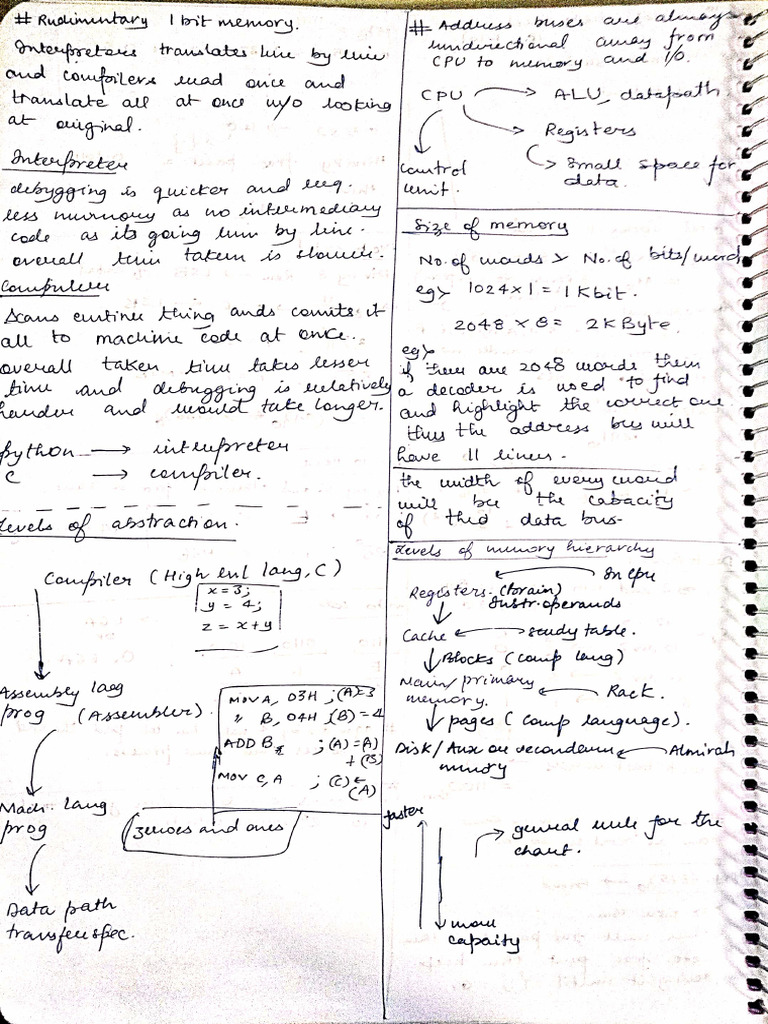 # Rudimentary 1 bit memory.
Interpreters translates line by line
and compilers read once and
translate all at once w/o looking
at original.
Interpreter
debugging is quicker and req.
less memory as no intermediary
code as its going line by line.
overall time taken is slower.
Compilers
Scans entire thing and it
all to machine code at once.
overall taken time takes lesser
time and debugging is relatively
harder and would take longer.
python → interpreter
C → compiler.
Levels of abstraction.
Compiler (High lang, C)
x = 3;
y = 4;
z = x+y
Assembly lang
prog (Assembler)
MOV A, 03H ; (A)=3
" B, 04H ; (B) = 4
ADD B ; (A) = (A)
+ (B)
MOV C, A ; (C) ←
(A)
Mach. lang
prog
zeroes and ones
Data path
transfer spec.
# Address buses are always
unidirectional away from
CPU to memory and I/O.
CPU → ALU, datapath
→ Registers
→ Small space for
data.
control
unit.
Size of memory
No. of words × No. of bits/word
eg> 1024 × 1 = 1 Kbit.
2048 × 8 = 2K Byte.
eg>
if there are 2048 words then
a decoder is used to find
and highlight the correct one
thus the address bus will
have 11 lines.
the width of every word
will be the capacity
of data bus-
Levels of memory hierarchy
In cpu
Registers. (brain)
Instr. operands
Cache ← study table.
↓ Blocks (comp lang)
Main/primary
memory. ← Rack.
↓ pages (comp language).
Disk/Aux or secondary ← Almirah
memory
faster
→ general rule for the
chart.
more
capaity